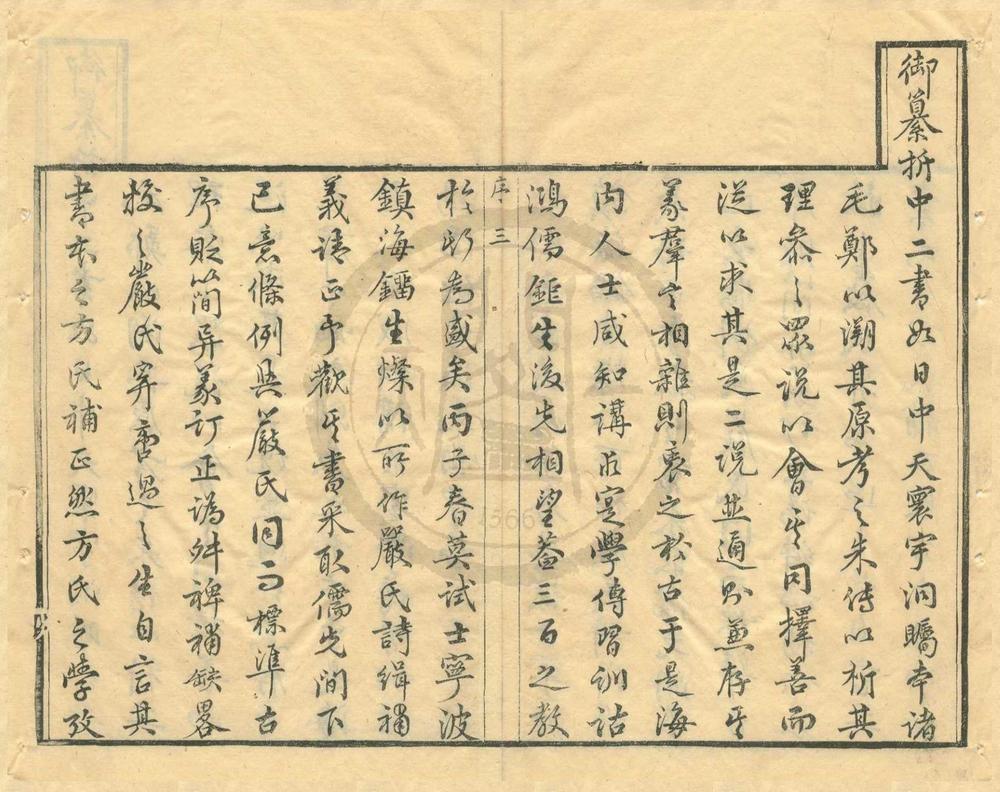 御纂折中二書如日中天寰宇洞矚本諸
毛鄭以溯其原考之朱傳以析其
理參之眾說以會其同擇善而
從以求其是二說並通則兼存其
義羣言相雜則衷之於古于是海
內人士咸知講求定學傳習訓詁
鴻儒鉅生後先相望葢三百之教
序 三
於斯為盛矣丙子春莫試士寧波
鎮海鐂生燦以所作嚴氏詩緝補
義請正予歡其書采取儒先間下
已意條例與嚴氏同而標準古
序貶簡异義訂正譌舛裨補缺畧
校之嚴氏寀密過之生自言其
書本之方氏補正然方氏之學攷